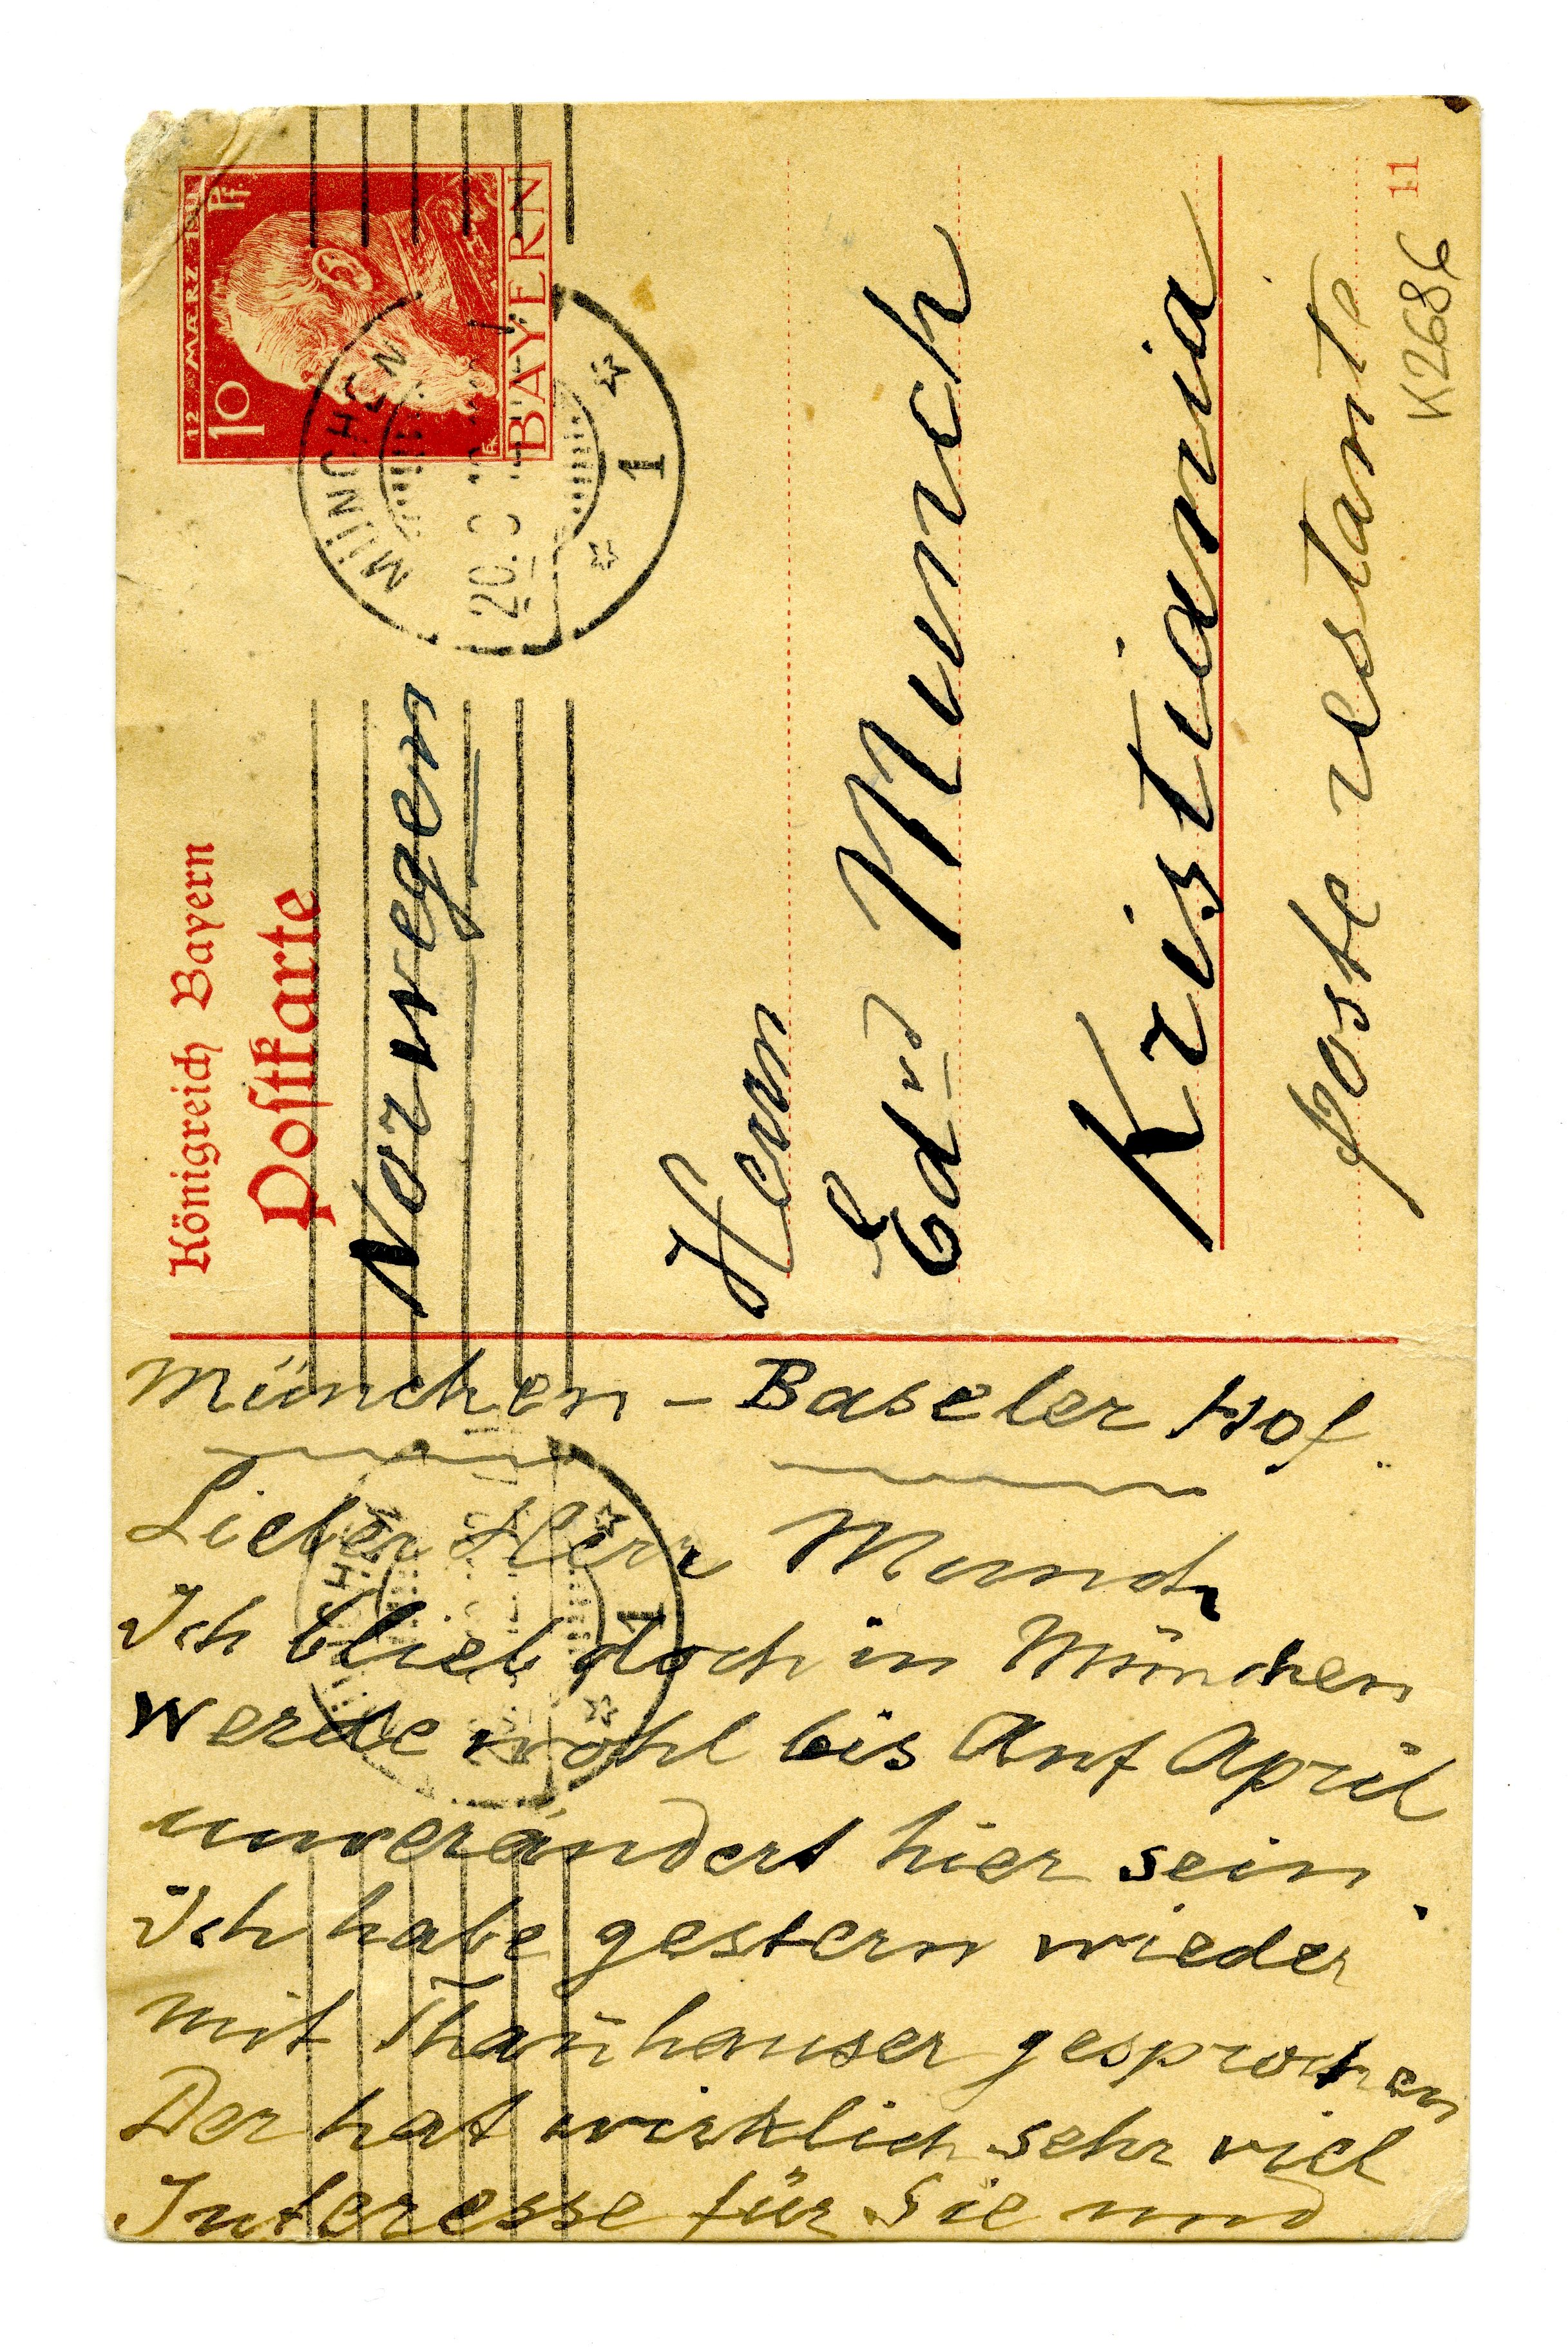 Königreich Bayern
Postkarte
12 MÄRZ 1911
10 Pf.
BAYERN
MÜNCHEN
1
Norwegen
Herrn
Edvd Munch
Kristiania
poste restante
11
K2686
München - Baseler Hof.
Lieber Herr Munch
Ich blieb doch in München
werde wohl bis Anf April
unverändert hier sein.
Ich habe gestern wieder
mit Thanhauser gesprochen
Der hat wirklich sehr viel
Interesse für Sie und